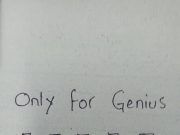 Only for Genius